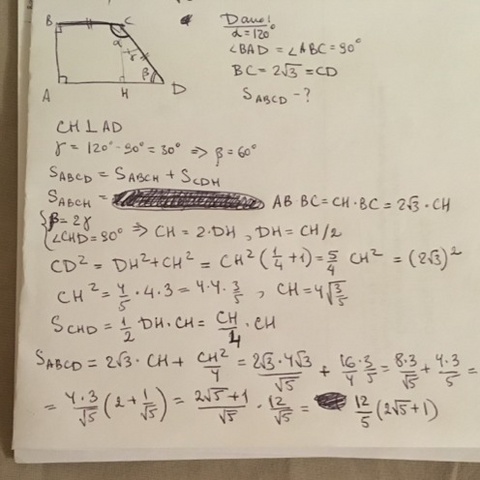 B
C
α
γ
β
A
H
D
Дано:
α=120°
∠BAD = ∠ABC = 90°
BC = 2√3 = CD
S_ABCD - ?
CH ⊥ AD
γ = 120° - 90° = 30° => β = 60°
S_ABCD = S_ABCH + S_CDH
S_ABCH = AB·BC = CH·BC = 2√3 · CH
{β = 2γ
{∠CHD = 90° => CH = 2·DH, DH = CH/2
CD² = DH² + CH² = CH²(1/4 + 1) = 5/4 CH² = (2√3)²
CH² = 4/5 · 4·3 = 4·4·3/5, CH = 4√(3/5)
S_CHD = 1/2 DH·CH = CH/4 · CH
S_ABCD = 2√3 · CH + CH²/4 = 2√3·4√3/√5 + 16·3/4·5 = 8·3/√5 + 4·3/5 =
= 4·3/√5 (2 + 1/√5) = 2√5+1/√5 · 12/√5 = 12/5 (2√5+1)